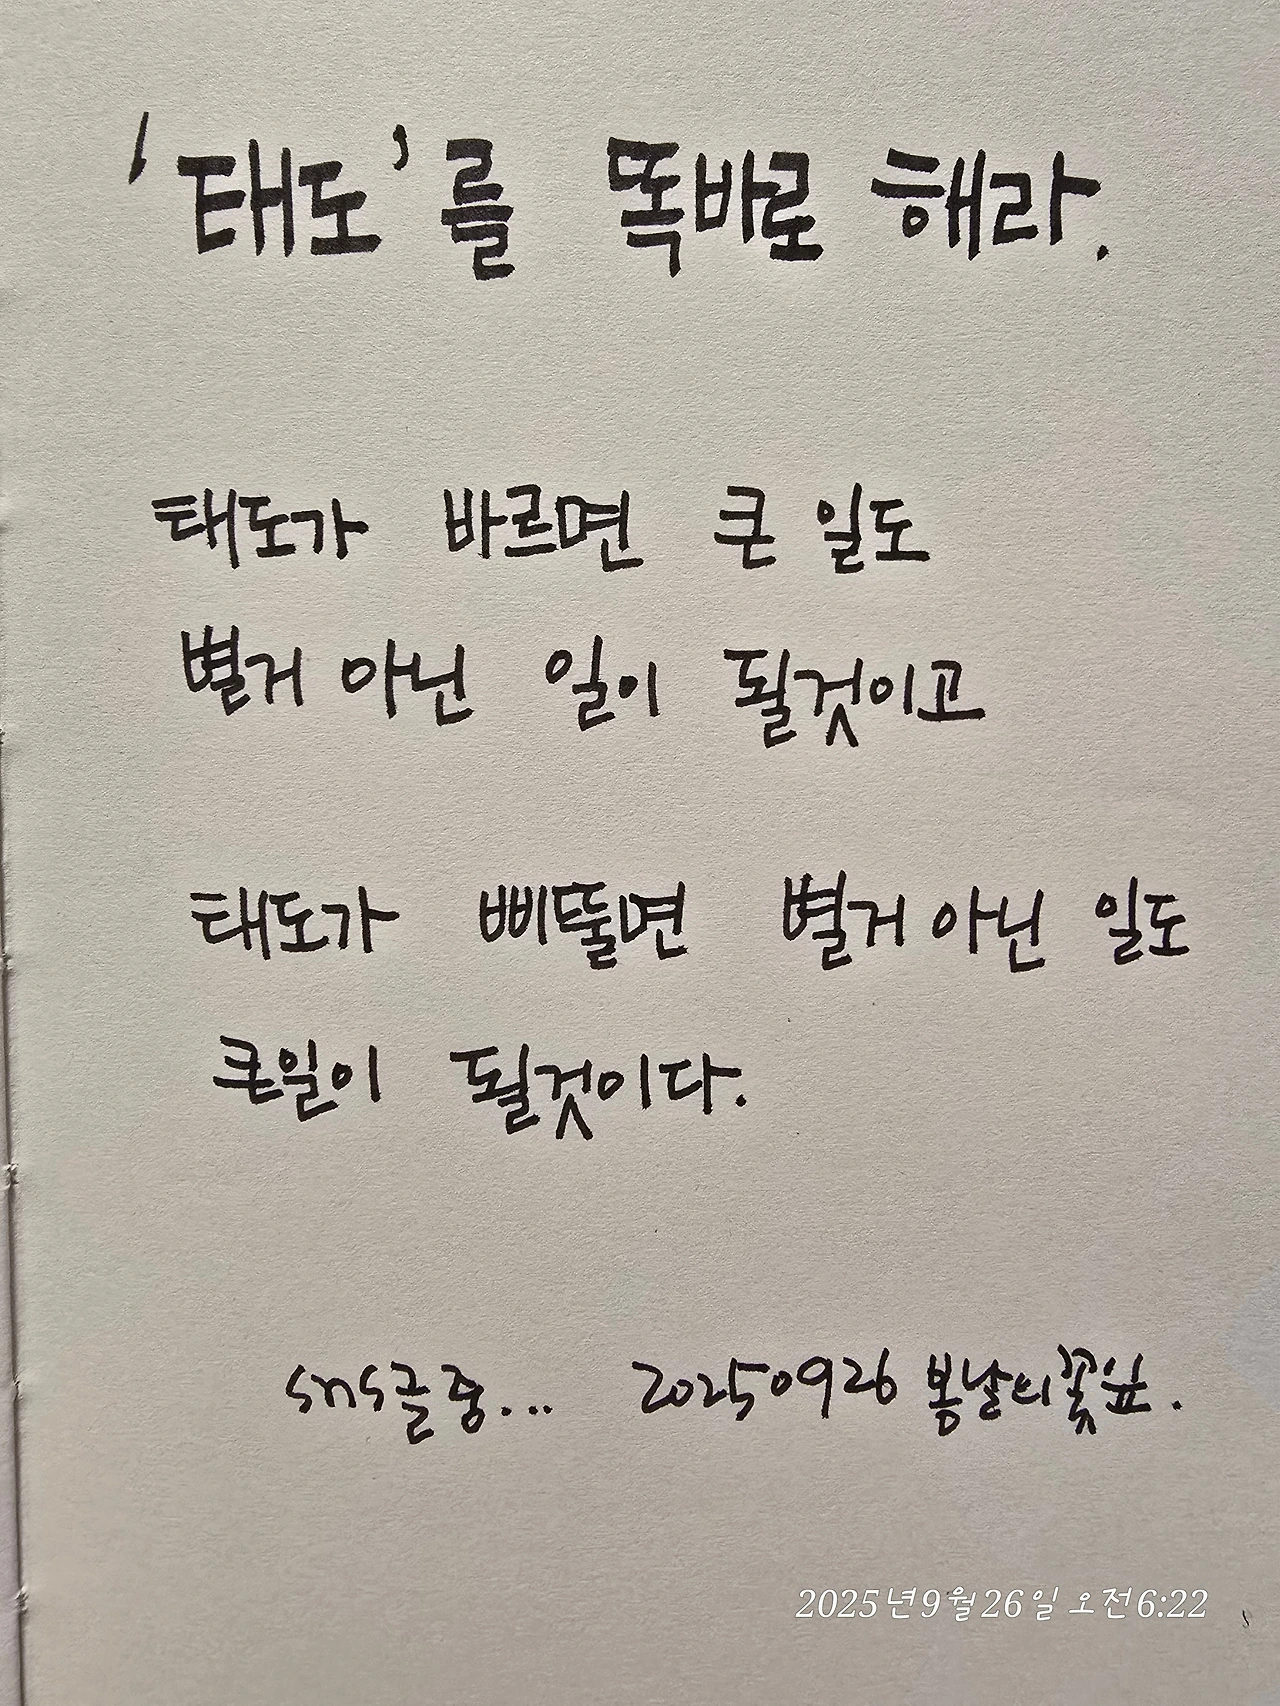 '태도'를 똑바로 해라.
태도가 바르면 큰 일도
별거 아닌 일이 될것이고
태도가 삐뚤면 별거 아닌 일도
큰일이 될것이다.
sns글중... 20250926 봄날의꽃잎.
2025년 9월 26일 오전 6:22